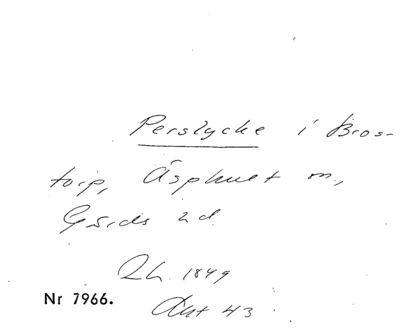 Perslycke i Bros-
torp, Äsphult sn,
Gärds hd.
Lh. 1849
Nr 7966.
Akt 43